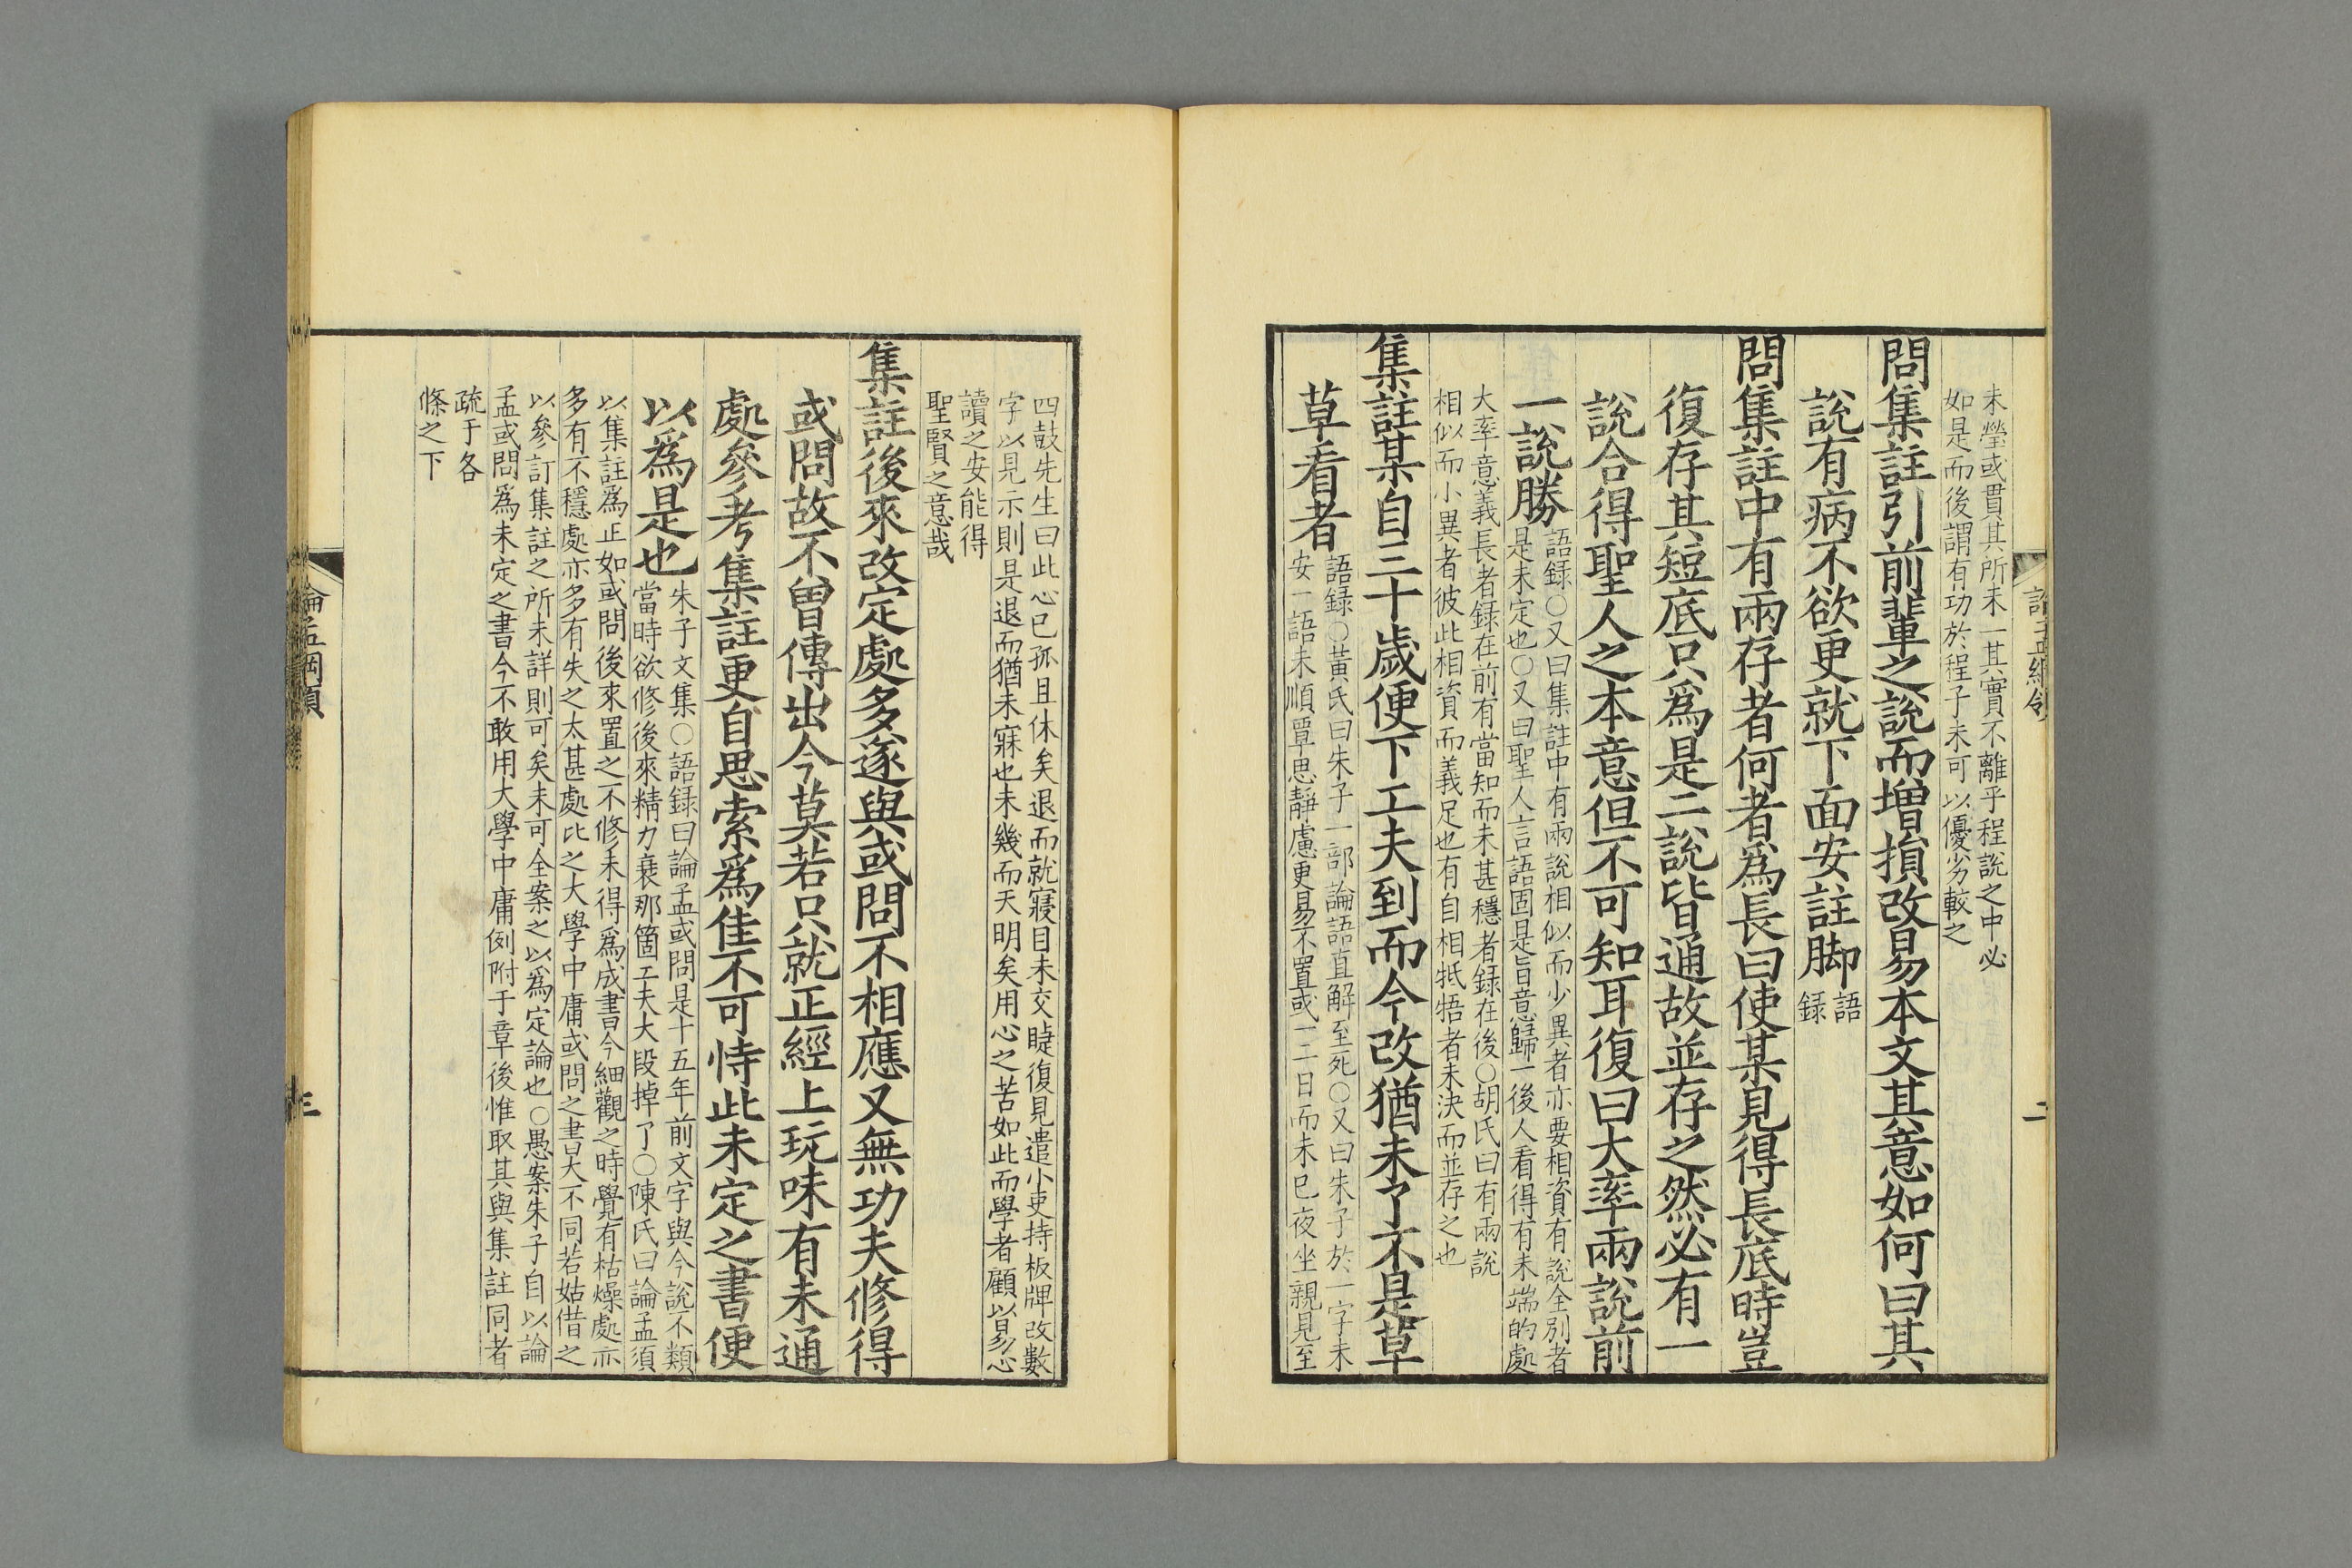 未瑩或貫其所未一其實不離乎程說之中必
如是而後謂有功於程子未可以優劣較之
問集註引前輩之說而增損改易本文其意如何曰其
說有病不欲更就下面安註脚語
錄
問集註中有兩存者何者爲長曰使某見得長底時豈
復存其短底只爲是二說皆通故並存之然必有一
說合得聖人之本意但不可知耳復曰大率兩說前
一說勝
語錄○又曰集註中有兩說相似而少異者亦要相資有說全別者
是未定也○又曰聖人言語固是旨意歸一後人看得有未端的處
大率意義長者錄在前有當知而未甚穩者錄在後○胡氏曰有兩說
相似而小異者彼此相資而義足也有自相牴牾者未決而並存之也
集註某自三十歲便下工夫到而今改猶未了不是草
草看者
語錄○黃氏曰朱子一部論語直解至死○又曰朱子於一字未
安一語未順覃思靜慮更易不置或一二日而未已夜坐親見至
四鼓先生曰此心已孤且休矣退而就寢目未交睫復見遣小吏持板牌改數
字以見示則是退而猶未寐也未幾而天明矣用心之苦如此而學者顧以易心
讀之安能得
聖賢之意哉
集註後來改定處多遂與或問不相應又無功夫修得
或問故不曾傳出今莫若只就正經上玩味有未通
處參考集註更自思索爲佳不可恃此未定之書便
以爲是也
朱子文集○語錄曰論孟或問是十五年前文字與今說不類
當時欲修後來精力衰那箇工夫大段掉了○陳氏曰論孟須
以集註爲正如或問後來置之不修未得爲成書今細觀之時覺有枯燥處亦
多有不穩處亦多有失之太甚處比之大學中庸或問之書大不同若姑借之
以參訂集註之所未詳則可矣未可全案之以爲定論也○愚案朱子自以論
孟或問爲未定之書今不敢用大學中庸例附于章後惟取其與集註同者
疏于各
條之下
論孟綱領
三